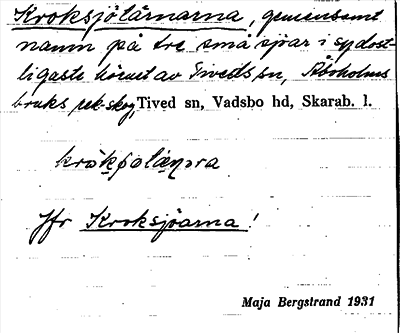 Kroksjötärnarna, gemensamt
namn på tre små sjöar i sydost-
ligaste hörnet av Tiveds sn,
bruks rek. skog, Tived sn, Vadsbo hd, Skarab. l.
Jfr Kroksjöarna!
Maja Bergstrand 1931